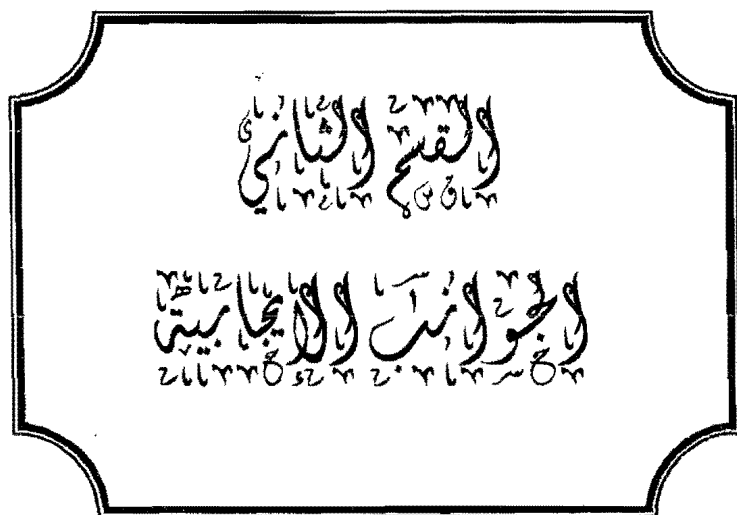 القسم الثاني
الجوانب الايجابية